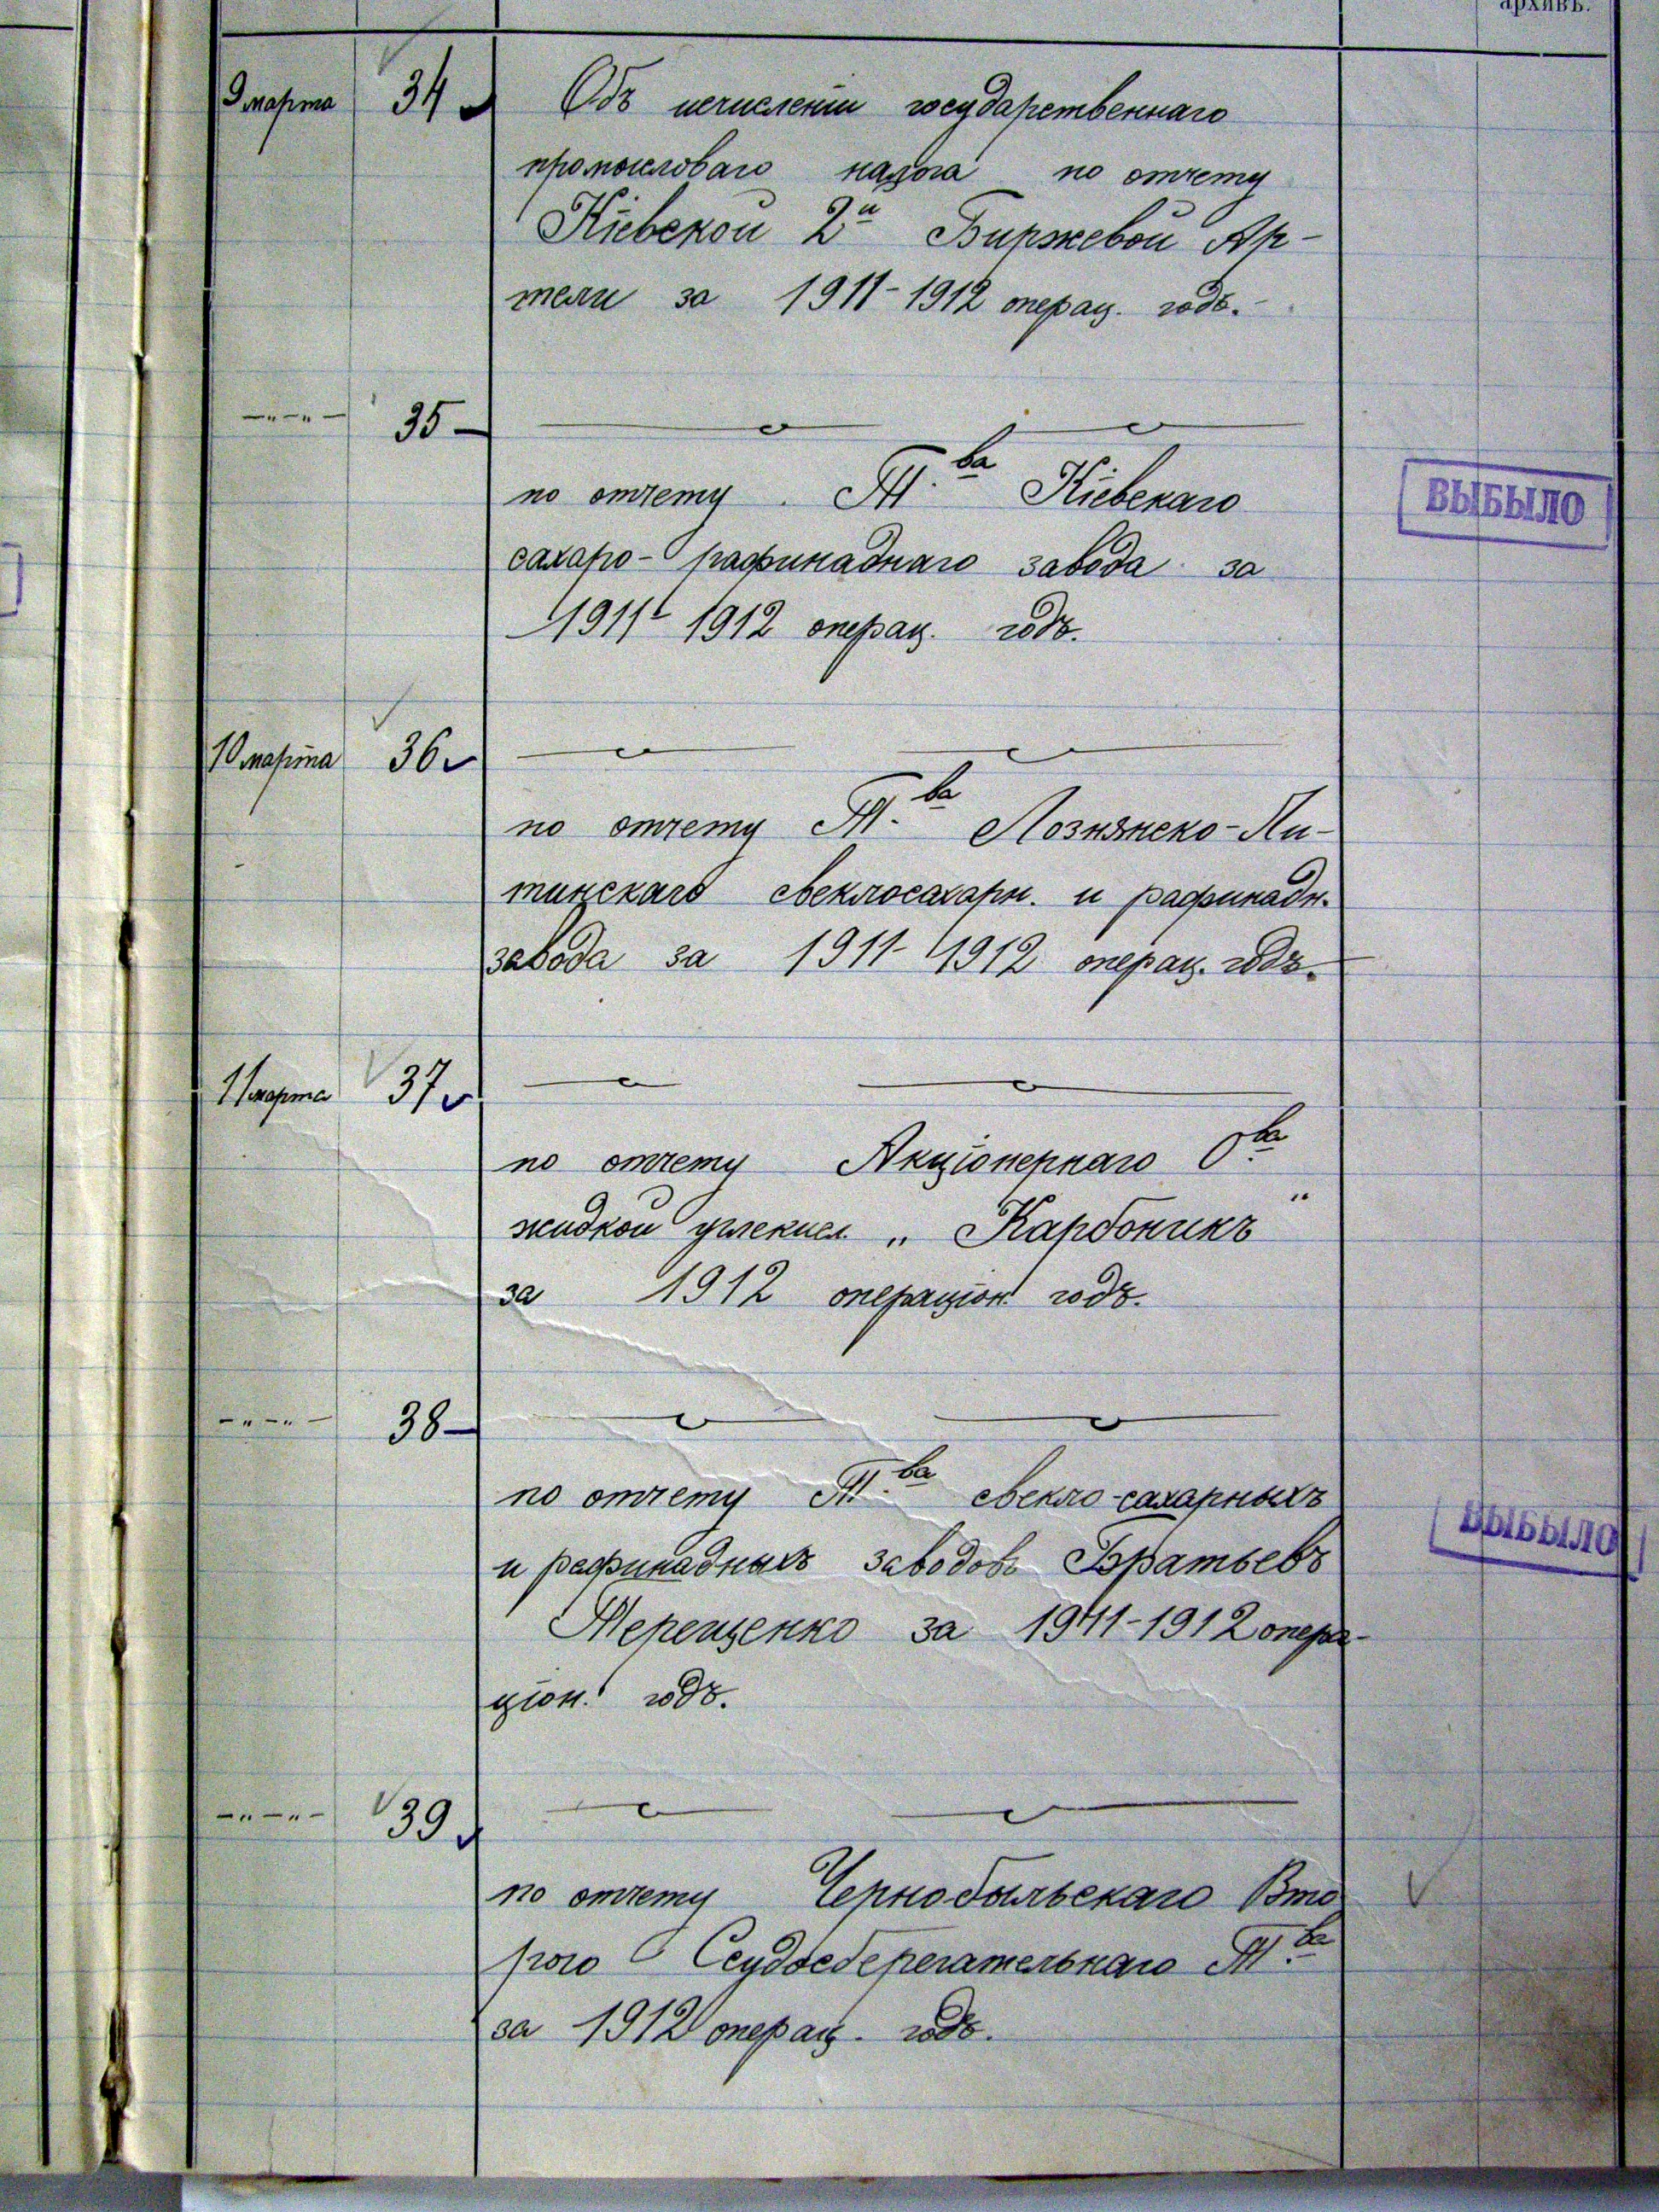 архивъ.
9 марта 34 Объ исчисленіи государственнаго
промысловаго налога по отчету
Кіевской 2й Биржевой Ар-
тели за 1911-1912 операц. годъ.-
-"-"- 35-
по отчету Т.ва Кіевскаго
ВЫБЫЛО
сахаро-рафинаднаго завода за
1911-1912 операц. годъ.
10 марта 36
по отчету Т.ва Лознянско-Ли-
тинскаго свеклосахарн. и рафинадн.
завода за 1911-1912 операц. годъ.
11 марта 37
по отчету Акціонернаго О.ва
жидкой углекисл. „Карбоникъ"
за 1912 операціон. годъ.
-"-"- 38-
по отчету Т.ва свекло-сахарныхъ
ВЫБЫЛО
и рафинадныхъ заводовъ Братьевъ
Терещенко за 1911-1912 опера-
ціон. годъ.
-"-"- 39
по отчету Чернобыльскаго Вто
рого Ссудосберегательнаго Т.ва
за 1912 операц. годъ.